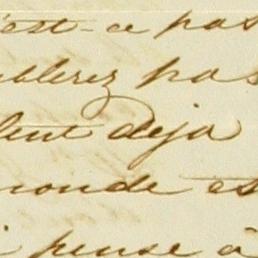 est-ce pas
blerez pas
lent deja
monde es
pense à